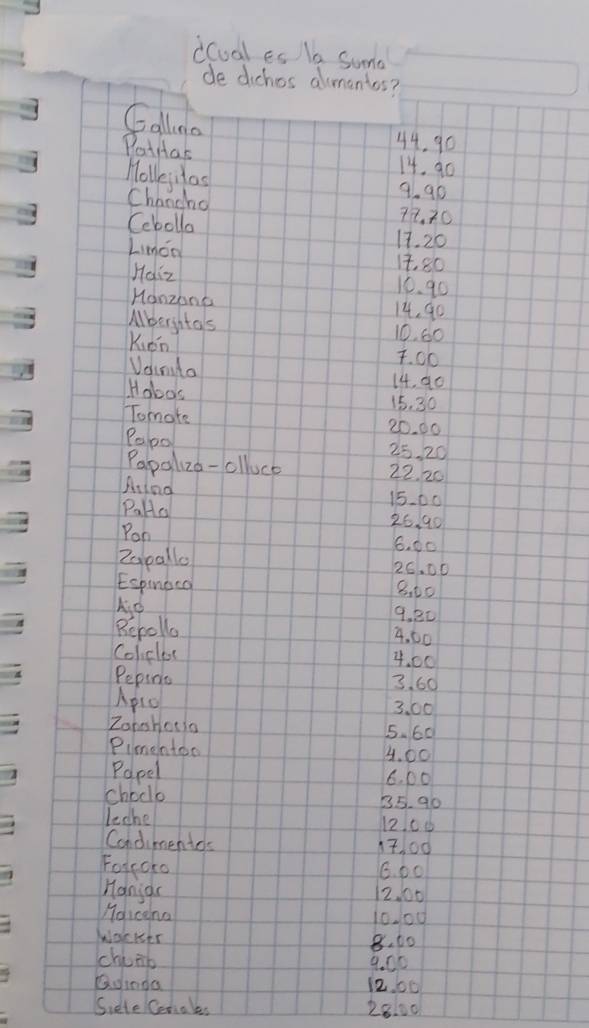 ¿Cual es la suma
de dichos alimentos?
Gallina 44.90
Patitas 14.90
Mollejitas 9.90
Chancho 77.20
Cebolla 17.20
Limón 17.80
Maíz 10.90
Manzana 14.90
Alberjitas 10.60
Kión 7.00
Vainita 14.90
Habas 15.30
Tomate 20.00
Papa 25.20
Papaliza-olluco 22.20
15.00
Palta 26.90
Pan 6.00
Zapallo 26.00
Espinaca 8.00
Ajo 9.80
Repollo 4.00
Coliflor 4.00
Pepino 3.60
Apio 3.00
Zanahoria 5.60
Pimenton 4.00
Papel 6.00
Choclo 35.90
leche 12.00
Condimentos 17.00
Fosforo 6.00
Manjar 12.00
Maicena 10.00
Wacker 8.00
chuño 9.00
Quinua 12.00
Siete Cereales 28.00